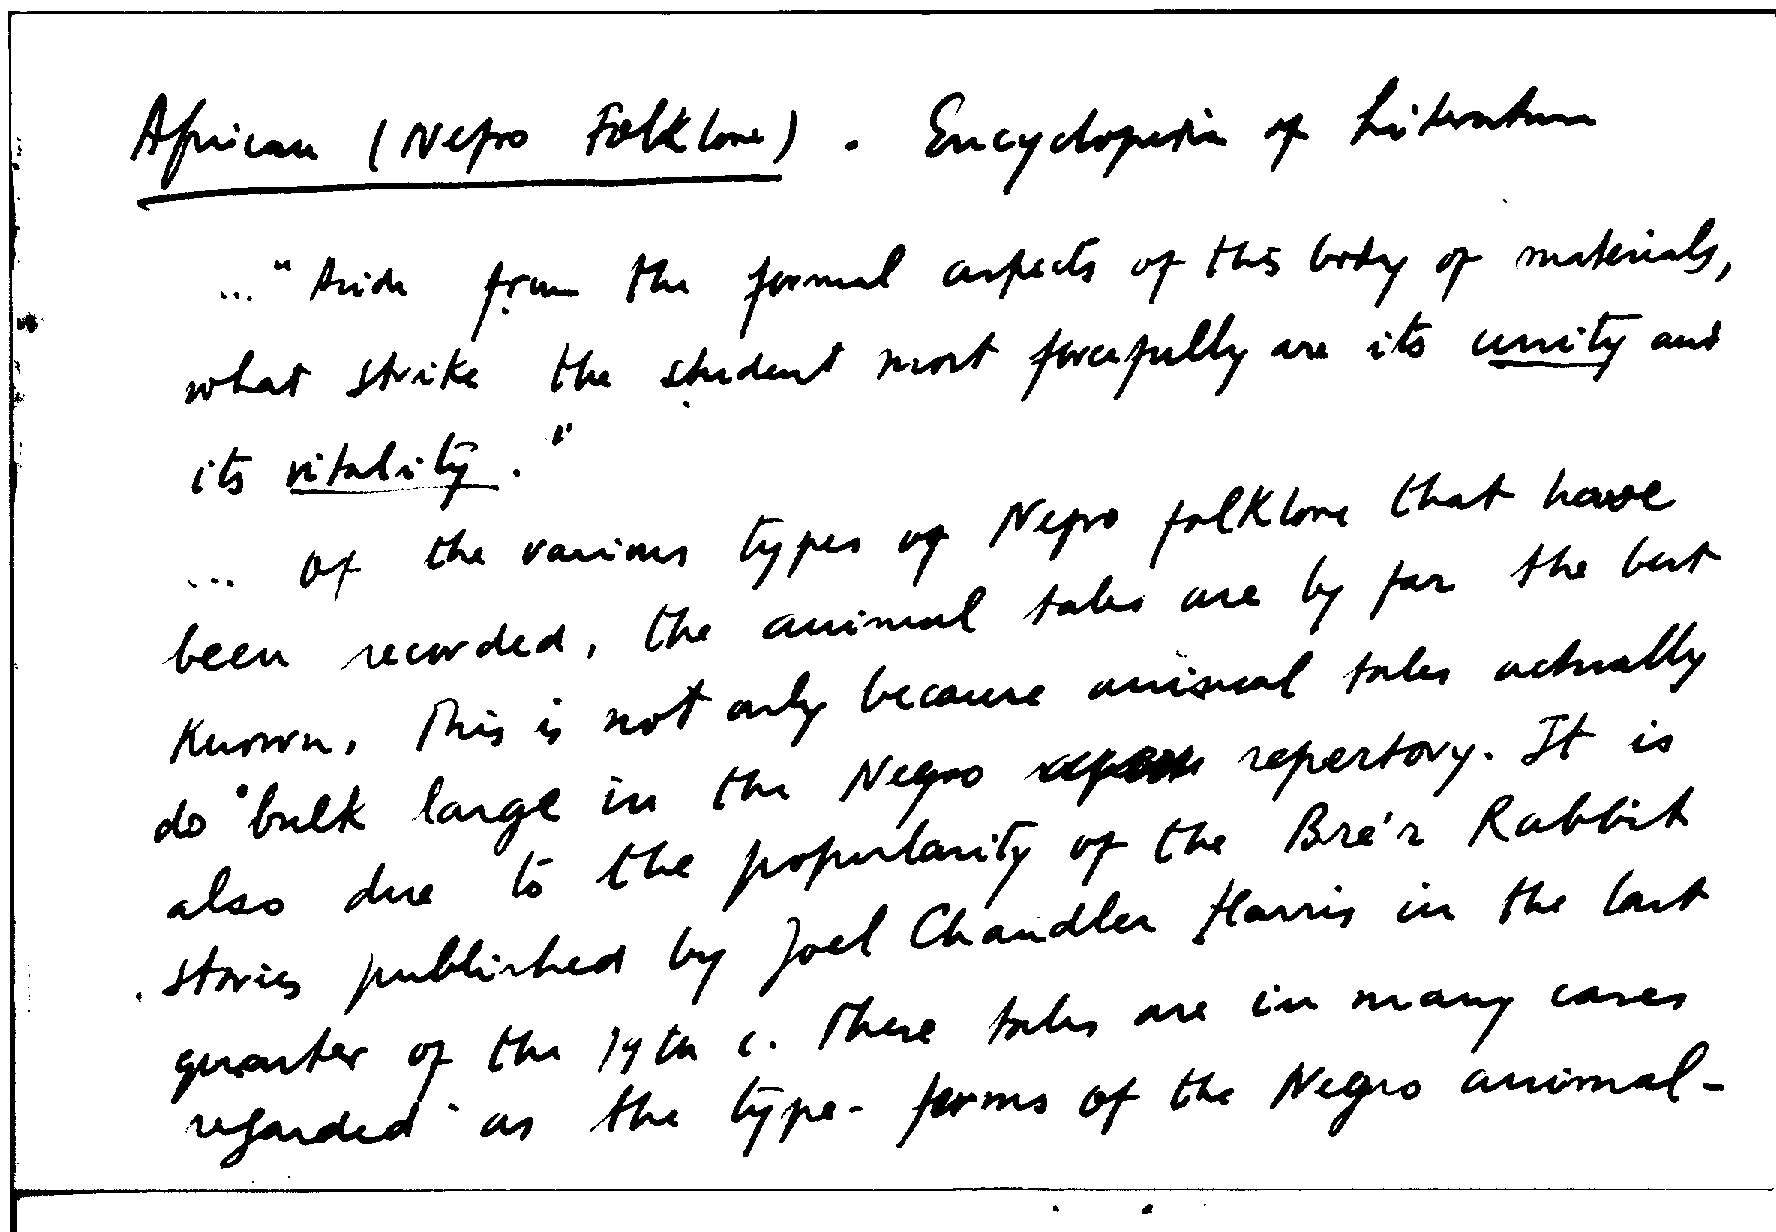 African (Negro Folklore). Encyclopedia of Literature
... "Aside from the formal aspects of this body of materials,
what strike the student most forcefully are its unity and
its vitality."
... Of the various types of Negro folklore that have
been recorded, the animal tales are by far the best
known. This is not only because animal tales actually
do bulk large in the Negro repertory. It is
also due to the popularity of the Bre'r Rabbit
stories published by Joel Chandler Harris in the last
quarter of the 19th c. These tales are in many cases
regarded as the type-forms of the Negro animal-